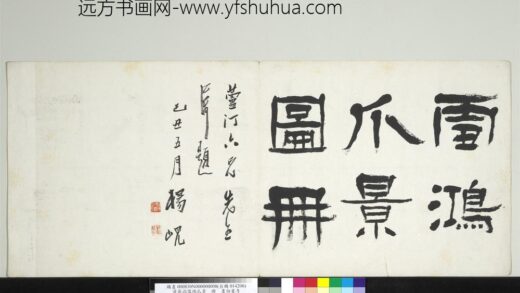 远方书画网-www.yfshuhua.com
雪鴻
爪景
圖冊
汀六兄先生
題
己丑五月楊峴